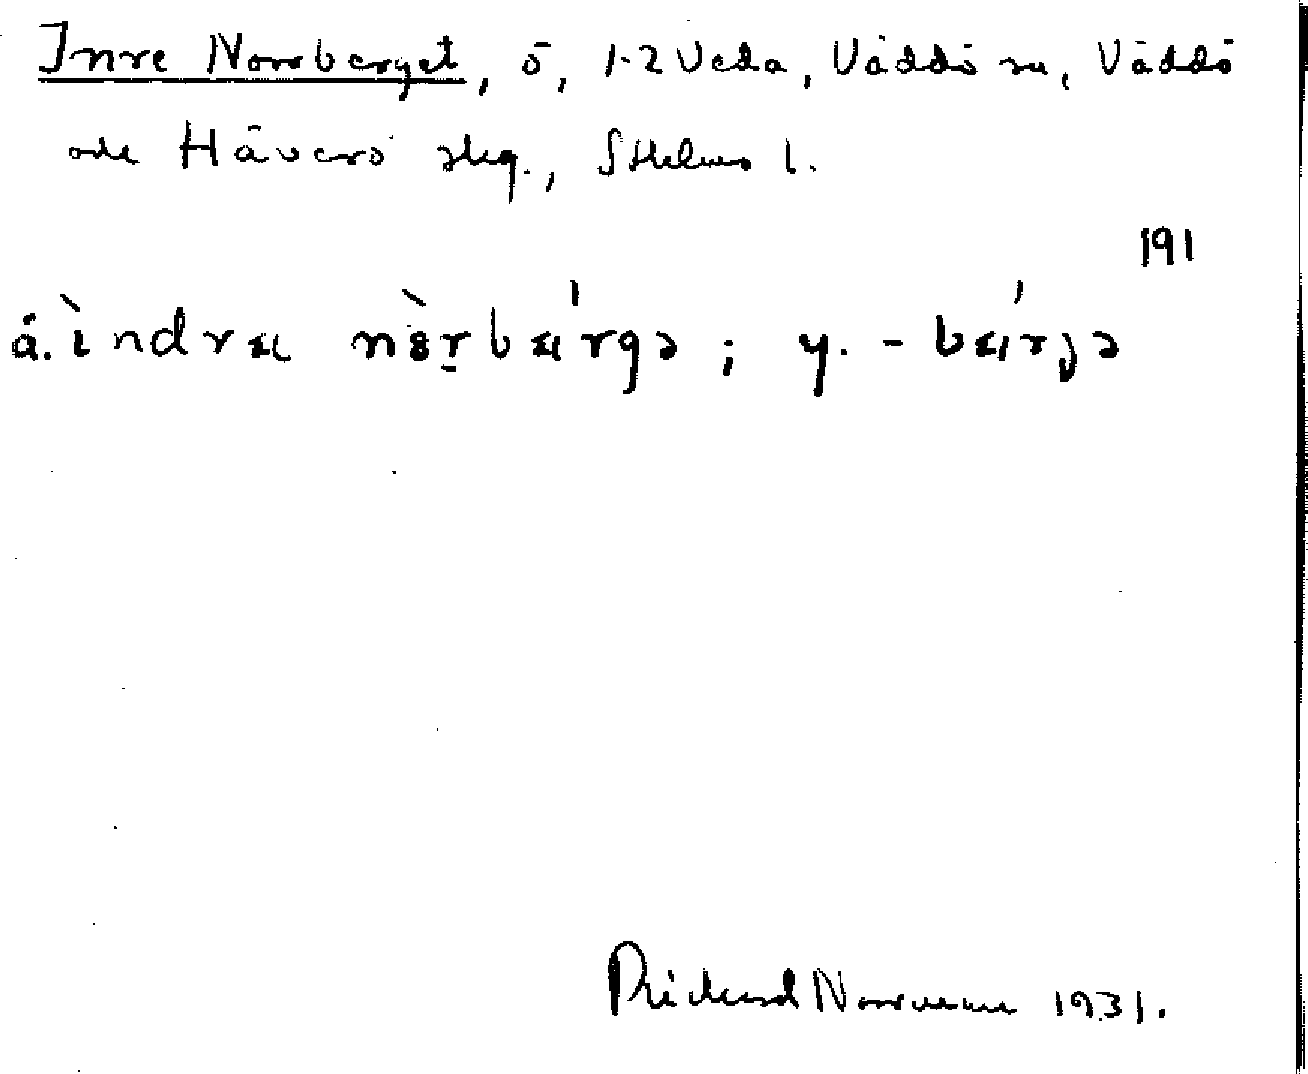 Inre Norrberget, ö, 1-2 Veda, Väddö sn, Väddö
och Häverö skg., Sthlms l.
191
á. ìndræ nèrbæ'rgə; y. - bæ'rjə
Rickard Norrman 1931.